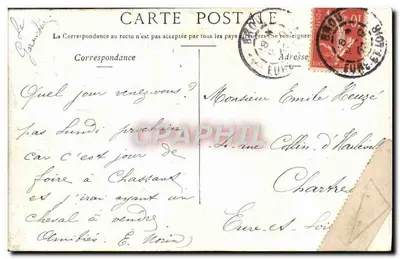 CARTE POSTALE
La Correspondance au recto n'est pas acceptée par tous les pays
Correspondance
Adresse
BROU
EURE
BROU
EURE ET LOIR
Quel jour venez-vous?
pas Lundi prochain
car c'est jour de
foire à Chassant
et j'irai ayant un
cheval à vendre
Amitiés E. Morin
Monsieur Emile Heuzé
rue Collin d'Harleville
Chartres
Eure et Loir
CPAPHIL